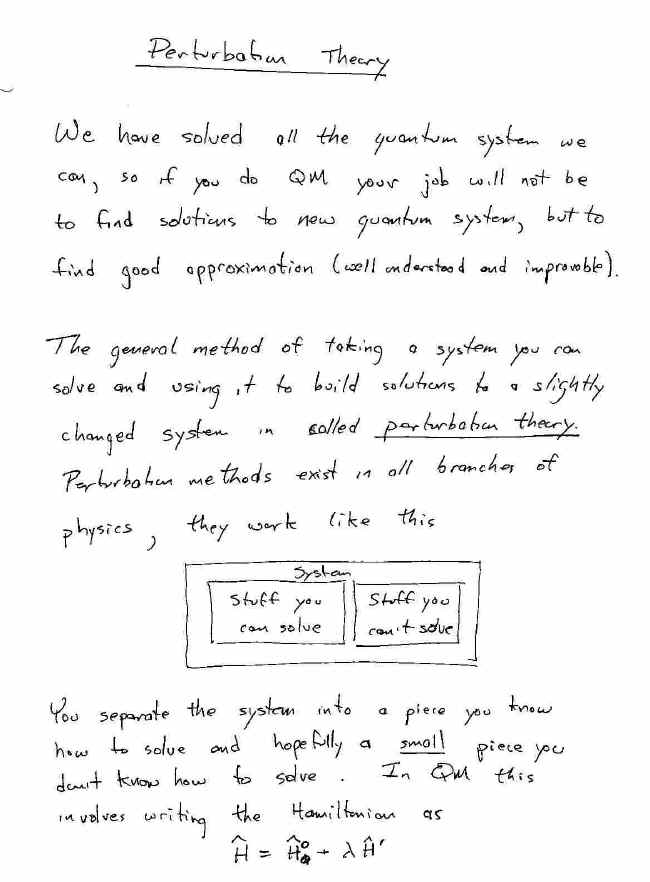 Perturbation Theory
We have solved all the quantum system we
can, so if you do QM your job will not be
to find solutions to new quantum system, but to
find good approximation (well understood and improvable).
The general method of taking a system you can
solve and using it to build solutions to a slightly
changed system in called perturbation theory.
Perturbation methods exist in all branches of
physics, they work like this
System
Stuff you
can solve
Stuff you
can't solve
You separate the system into a piece you know
how to solve and hopefully a small piece you
don't know how to solve. In QM this
involves writing the Hamiltonian as
Ĥ = Ĥ⁰ + λĤ'